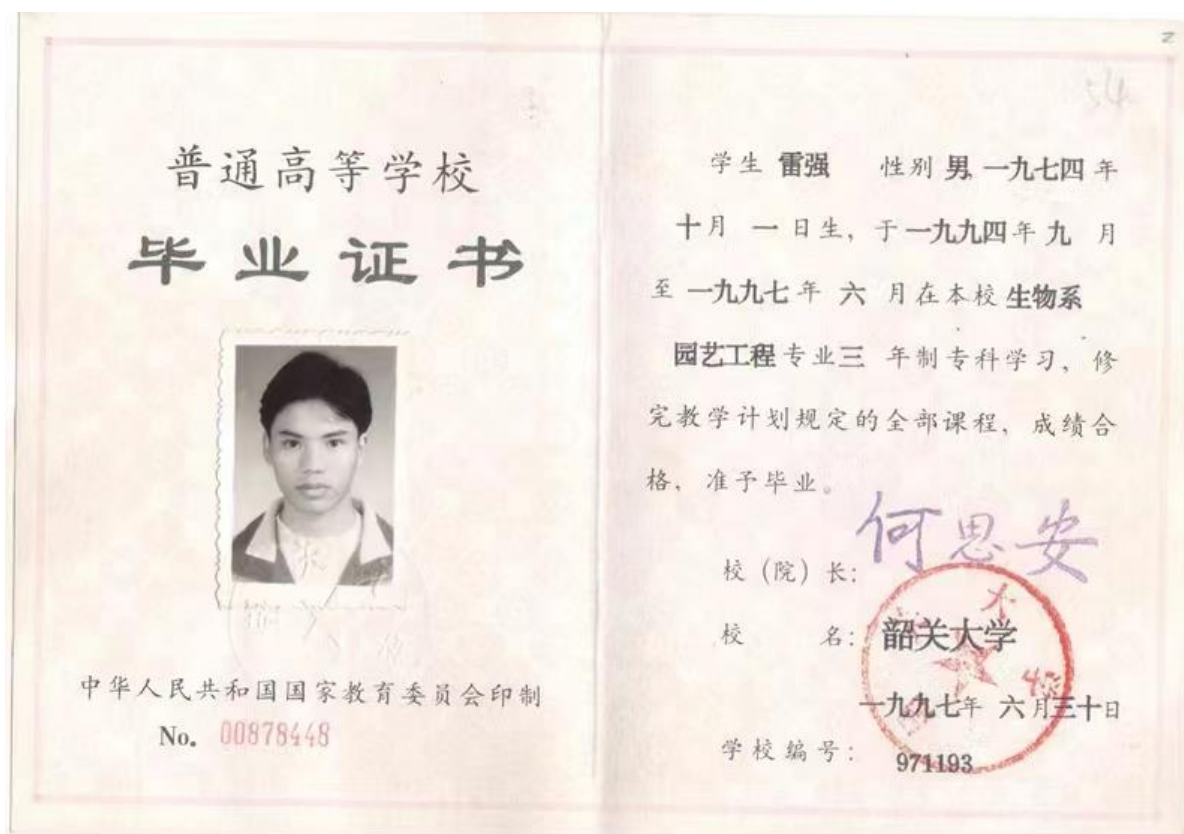 普通高等学校
毕业证书
中华人民共和国国家教育委员会印制
No. 00878448
学生 雷强 性别 男, 一九七四年
十月 一日生, 于一九九四年九 月
至 一九九七年 六 月在本校 生物系
园艺工程专业三 年制专科学习, 修
完教学计划规定的全部课程, 成绩合
格, 准予毕业。
校(院)长: 何思安
校 名: 韶关大学
一九九七年 六月三十日
学校编号: 971193